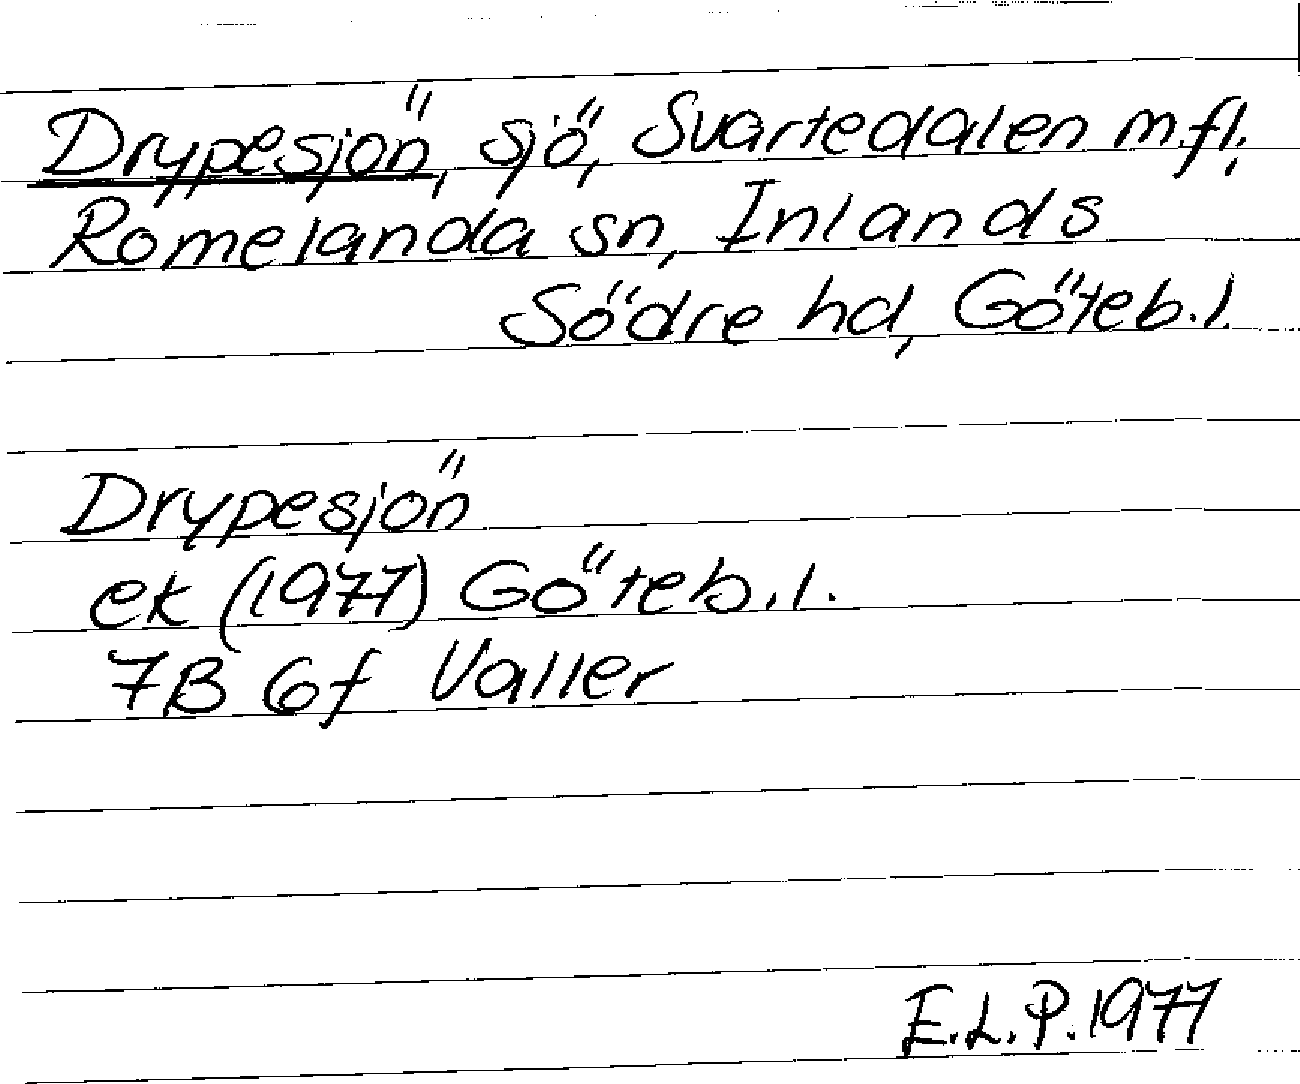 Drypesjön, sjö, Svartedalen m.fl.,
Romelanda sn, Inlands
Södre hd, Göteb.l.
Drypesjön
ek (1977) Göteb.l.
7B 6f Valler
E.L.P. 1977